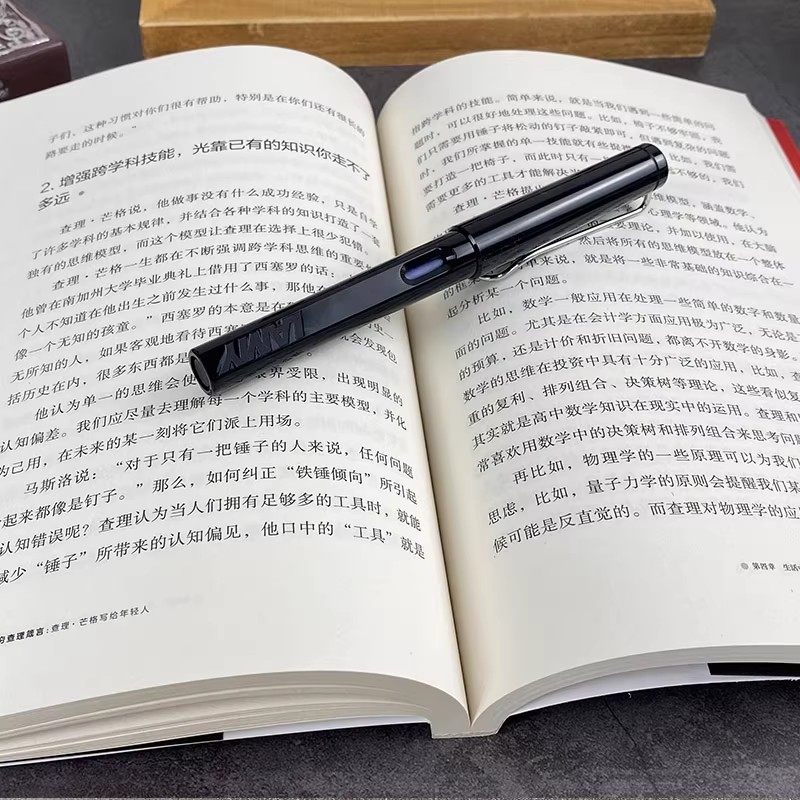 子们、这种习惯对你们很有帮助，特别是在你们还有很长的
路要走的时候。”
2. 增强跨学科技能，光靠已有的知识你走不了
多远。
查理·芒格说，他做事没有什么成功经验，只是自学
了许多学科的基本规律，并结合各种学科的知识打造了一套
独有的思维模型，而这个模型让查理在选择上很少犯错。
查理·芒格一生都在不断强调跨学科思维的重要
他曾在南加州大学毕业典礼上借用了西塞罗的话：
个人不知道在他出生之前发生过什么事，那他在
像一个无知的孩童。”西塞罗的本意是在
无所知的人，如果客观地看待西塞
就会发现包
括历史在内，很多东西都是
他认为单一的思维会使
眼界受限，出现明显的
认知偏差。我们应尽量去理解每一个学科的主要模型，并化
为己用，在未来的某一刻将它们派上用场。
马斯洛说：“对于只有一把锤子的人来说，任何问题
起来都像是钉子。”那么，如何纠正“铁锤倾向”所引起
认知错误呢？查理认为当人们拥有足够多的工具时，就能
减少“锤子”所带来的认知偏见，他口中的“工具”就是
的查理箴言：查理·芒格写给年轻人
指跨学科的技能。简单来说，就是当我们遇到一些简单的问
题时，可以很好地处理这些问题。比如，椅子不够牢固，我
们只需要用锤子将松动的钉子敲紧即可，但遇到复杂的问题
时，我们所掌握的单一技能就有些捉
比如，我们需
要打造一把椅子，而此时只有一
不够的，我们
需要更多的工具才能解决
查理·芒格提
思维模型，涵盖数学、
心理学等领域。他认为
重要理论，并加以使用，在大脑
然后将所有的思维模型放在一个整体
的框
单来说，就是将一些非常基础的知识综合在一
起分析某一个问题。
比如，数学一般应用在处理一些简单的数字和数量
面的问题。尤其是在会计学方面应用极为广泛，无论是
的预算，还是计价和折旧问题，都离不开数学的身影。
数学的思维在投资中具有十分广泛的应用，比如，查
重的复利、排列组合、决策树等理论，这些看似复
其实就是高中数学知识在现实中的运用。查理和
常喜欢用数学中的决策树和排列组合来思考问题
再比如，物理学的一些原理可以为我们
思虑，比如，量子力学的原则会提醒我们某
候可能是反直觉的。而查理对物理学的应
第四章 生活
LAMY